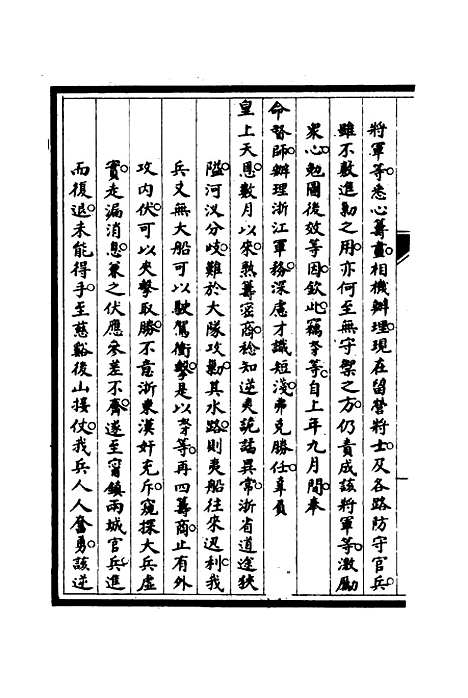 將軍等。悉心籌畫。相機辦理。現在留營將士。及各路防守官兵。
雖不敷進勦之用。亦何至無守禦之方。仍責成該將軍等。激勵
衆心。勉圖後效等因。欽此。竊李等。自上年九月間。奉
命督師。辦理浙江軍務。深慮才識短淺。弗克勝任。辜負
皇上天恩。數月以來。熟籌密商。稔知逆夷詭譎異常。浙省道途狹
隘。河汊分歧。難於大隊攻勦。其水路。則夷船往來迅利。我
兵又無大船可以駛駕衝擊。是以李等。再四籌商。止有外
攻内伏。可以夾擊取勝。不意浙東漢奸充斥。窺探大兵虛
實。走漏消息。兼之伏應參差不齊。遂至甯鎮兩城官兵。進
而復退。未能得手。至慈谿後山接仗。我兵人人奮勇。該逆